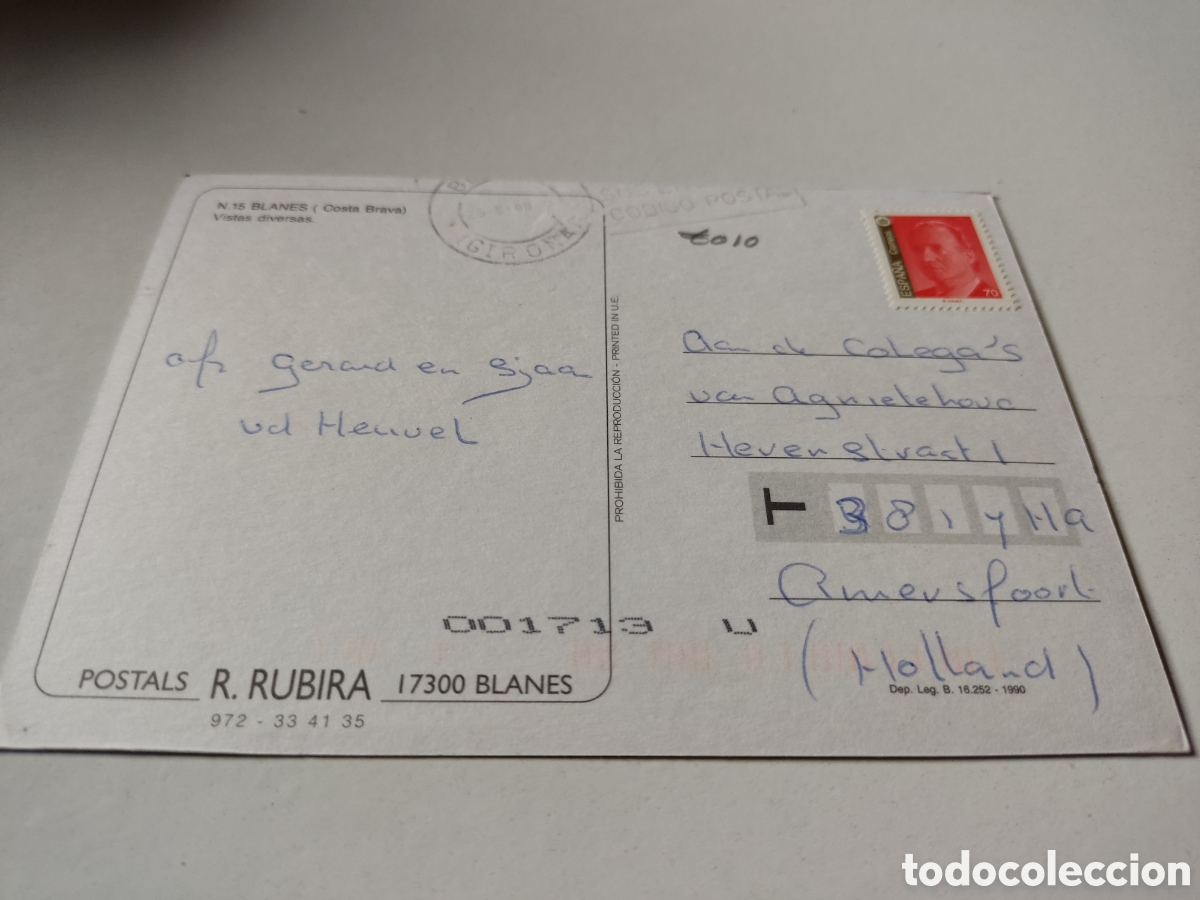 N.15 BLANES ( Costa Brava)
Vistas diversas.
(GIRONA)
CODIGO POSTAL
6010
ESPAÑA Correos
70
afz Gerard en Sjaan
vd Heuvel
PROHIBIDA LA REPRODUCCIÓN - PRINTED IN U.E.
Aan de Colega's
van Agnietehove
Heven straat 1
T 3814 HA
Amersfoort
(Holland)
001713 U
POSTALS R. RUBIRA 17300 BLANES
972 - 33 41 35
Dep. Leg. B. 16.252 - 1990
todocoleccion